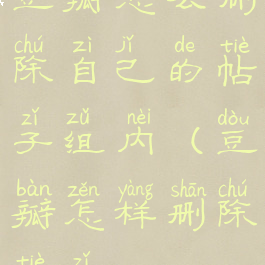 chú zì jǐ de tiè
除自己的帖
zǐ zǔ nèi dòu
子组内(豆
bàn zěn yàng shān chú
瓣怎样删除
tiè zǐ